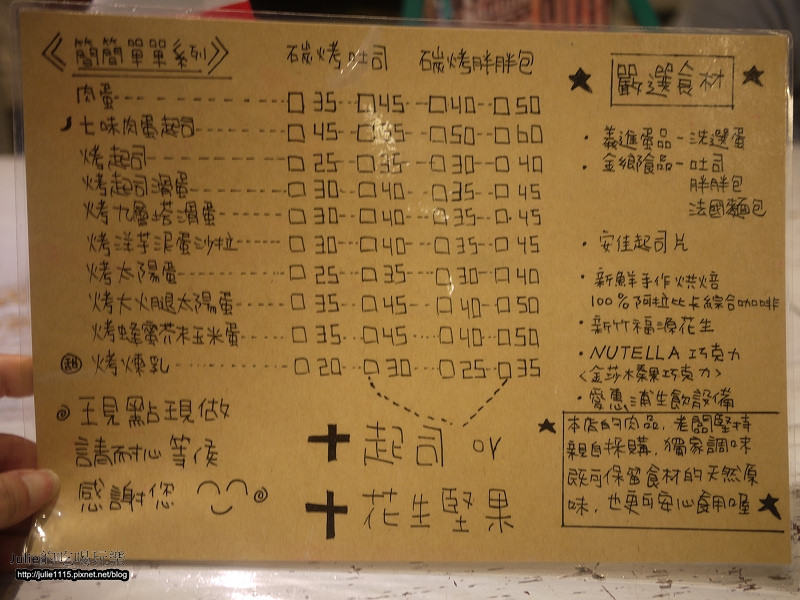 《簡簡單單系列》 碳烤吐司 碳烤胖胖包
肉蛋 □ 35 □ 45 □ 40 □ 50
七味肉蛋起司 □ 45 □ 55 □ 50 □ 60
烤起司 □ 25 □ 35 □ 30 □ 40
烤起司滑蛋 □ 30 □ 40 □ 35 □ 45
烤九層塔滑蛋 □ 30 □ 40 □ 35 □ 45
烤洋芋泥蛋沙拉 □ 30 □ 40 □ 35 □ 45
烤太陽蛋 □ 25 □ 35 □ 30 □ 40
烤火腿太陽蛋 □ 35 □ 45 □ 40 □ 50
烤蜂蜜芥末玉米蛋 □ 35 □ 45 □ 40 □ 50
超 烤煉乳 □ 20 □ 30 □ 25 □ 35
+起司 or
+花生堅果
現點現做
請耐心等候
感謝您
★ 嚴選食材 ★
・義進蛋品-洗選蛋
・金鄉食品-吐司
胖胖包
法國麵包
・安佳起司片
・新鮮手作烘焙
100%阿拉比卡綜合咖啡
・新竹福源花生
・NUTELLA 巧克力
〈金莎榛果巧克力〉
・愛惠浦生飲設備
★ 本店的肉品,老闆堅持
親自採購,獨家調味
既可保留食材的天然原
味,也更可安心食用喔 ★
Julie
http://julie1115.pixnet.net/blog